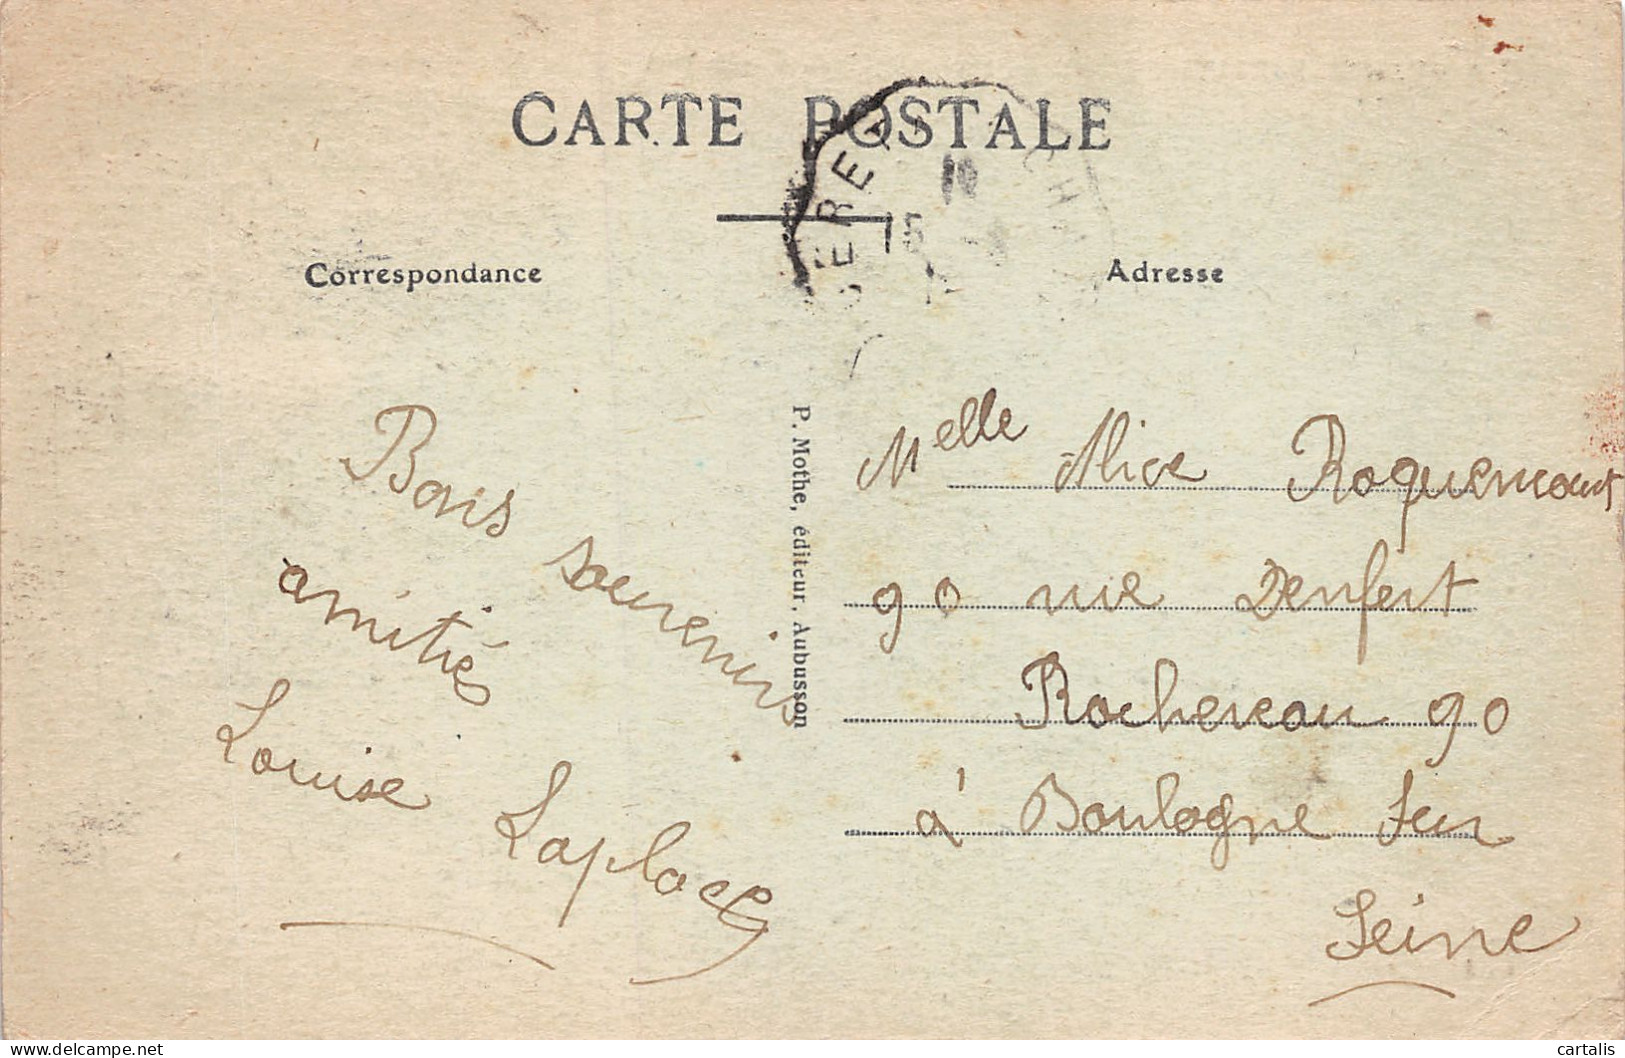 CARTE POSTALE
Correspondance
Adresse
Bons souvenirs
amitiés
Louise Laplace
P. Mothe, éditeur, Aubusson
Melle Alice Roquencourt
90 rue Denfert
Rochereau 90
à Boulogne sur
Seine
www.delcampe.net
cartalis